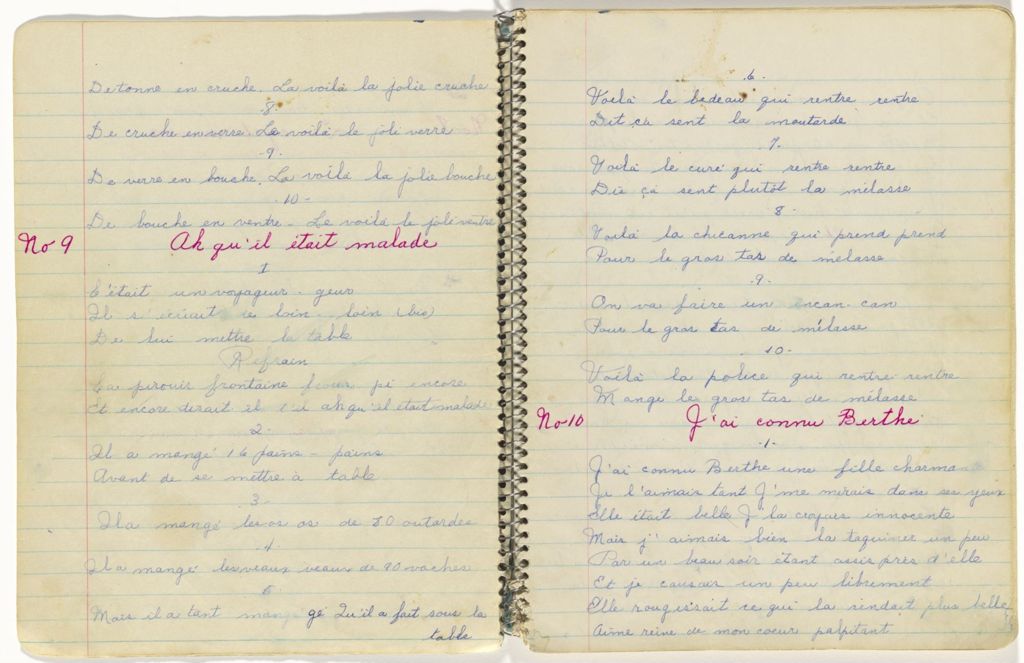 De tonne en cruche. La voilà la jolie cruche
.8.
De cruche en verre. Le voilà le joli verre
.9.
De verre en bouche. La voilà la jolie bouche
.10.
De bouche en ventre. Le voilà le joli ventre
No 9 Ah qu'il était malade
1
C'était un voyageur - geur
Il s'écriait de loin - loin (bis)
De lui mettre la table
Refrain
frontaine pi encore
Et encore dirait il ah qu'il était malade
2.
Il a mangé 16 pains - pains
Avant de se mettre à table
3.
Il a mangé les os os de 80 outardes
4
Il a mangé les veaux veaux de 90 vaches
5.
Mais il a tant mangé gé Qu'il a fait sous la
table
.6.
Voilà le bedeau qui rentre rentre
Dit ça sent la moutarde
.7.
Voilà le curé qui rentre rentre
Dis ça sent plutôt la mélasse
8.
Voilà la chicanne qui prend prend
Pour le gros tas de mélasse
.9.
On va faire un encan-can
Pour le gros tas de mélasse
.10.
Voilà la police qui rentre rentre
Mange le gros tas de mélasse
No 10 J'ai connu Berthe
.1.
J'ai connu Berthe une fille charman
Je l'aimais tant J'me mirais dans ses yeux
Elle était belle J la croyais innocente
Mais j'aimais bien la taquiner un peu
Par un beau soir étant assis près d'elle
Et je causais un peu librement
Elle rougissait ce qui la rendait plus belle
Aime reine de mon coeur palpitant